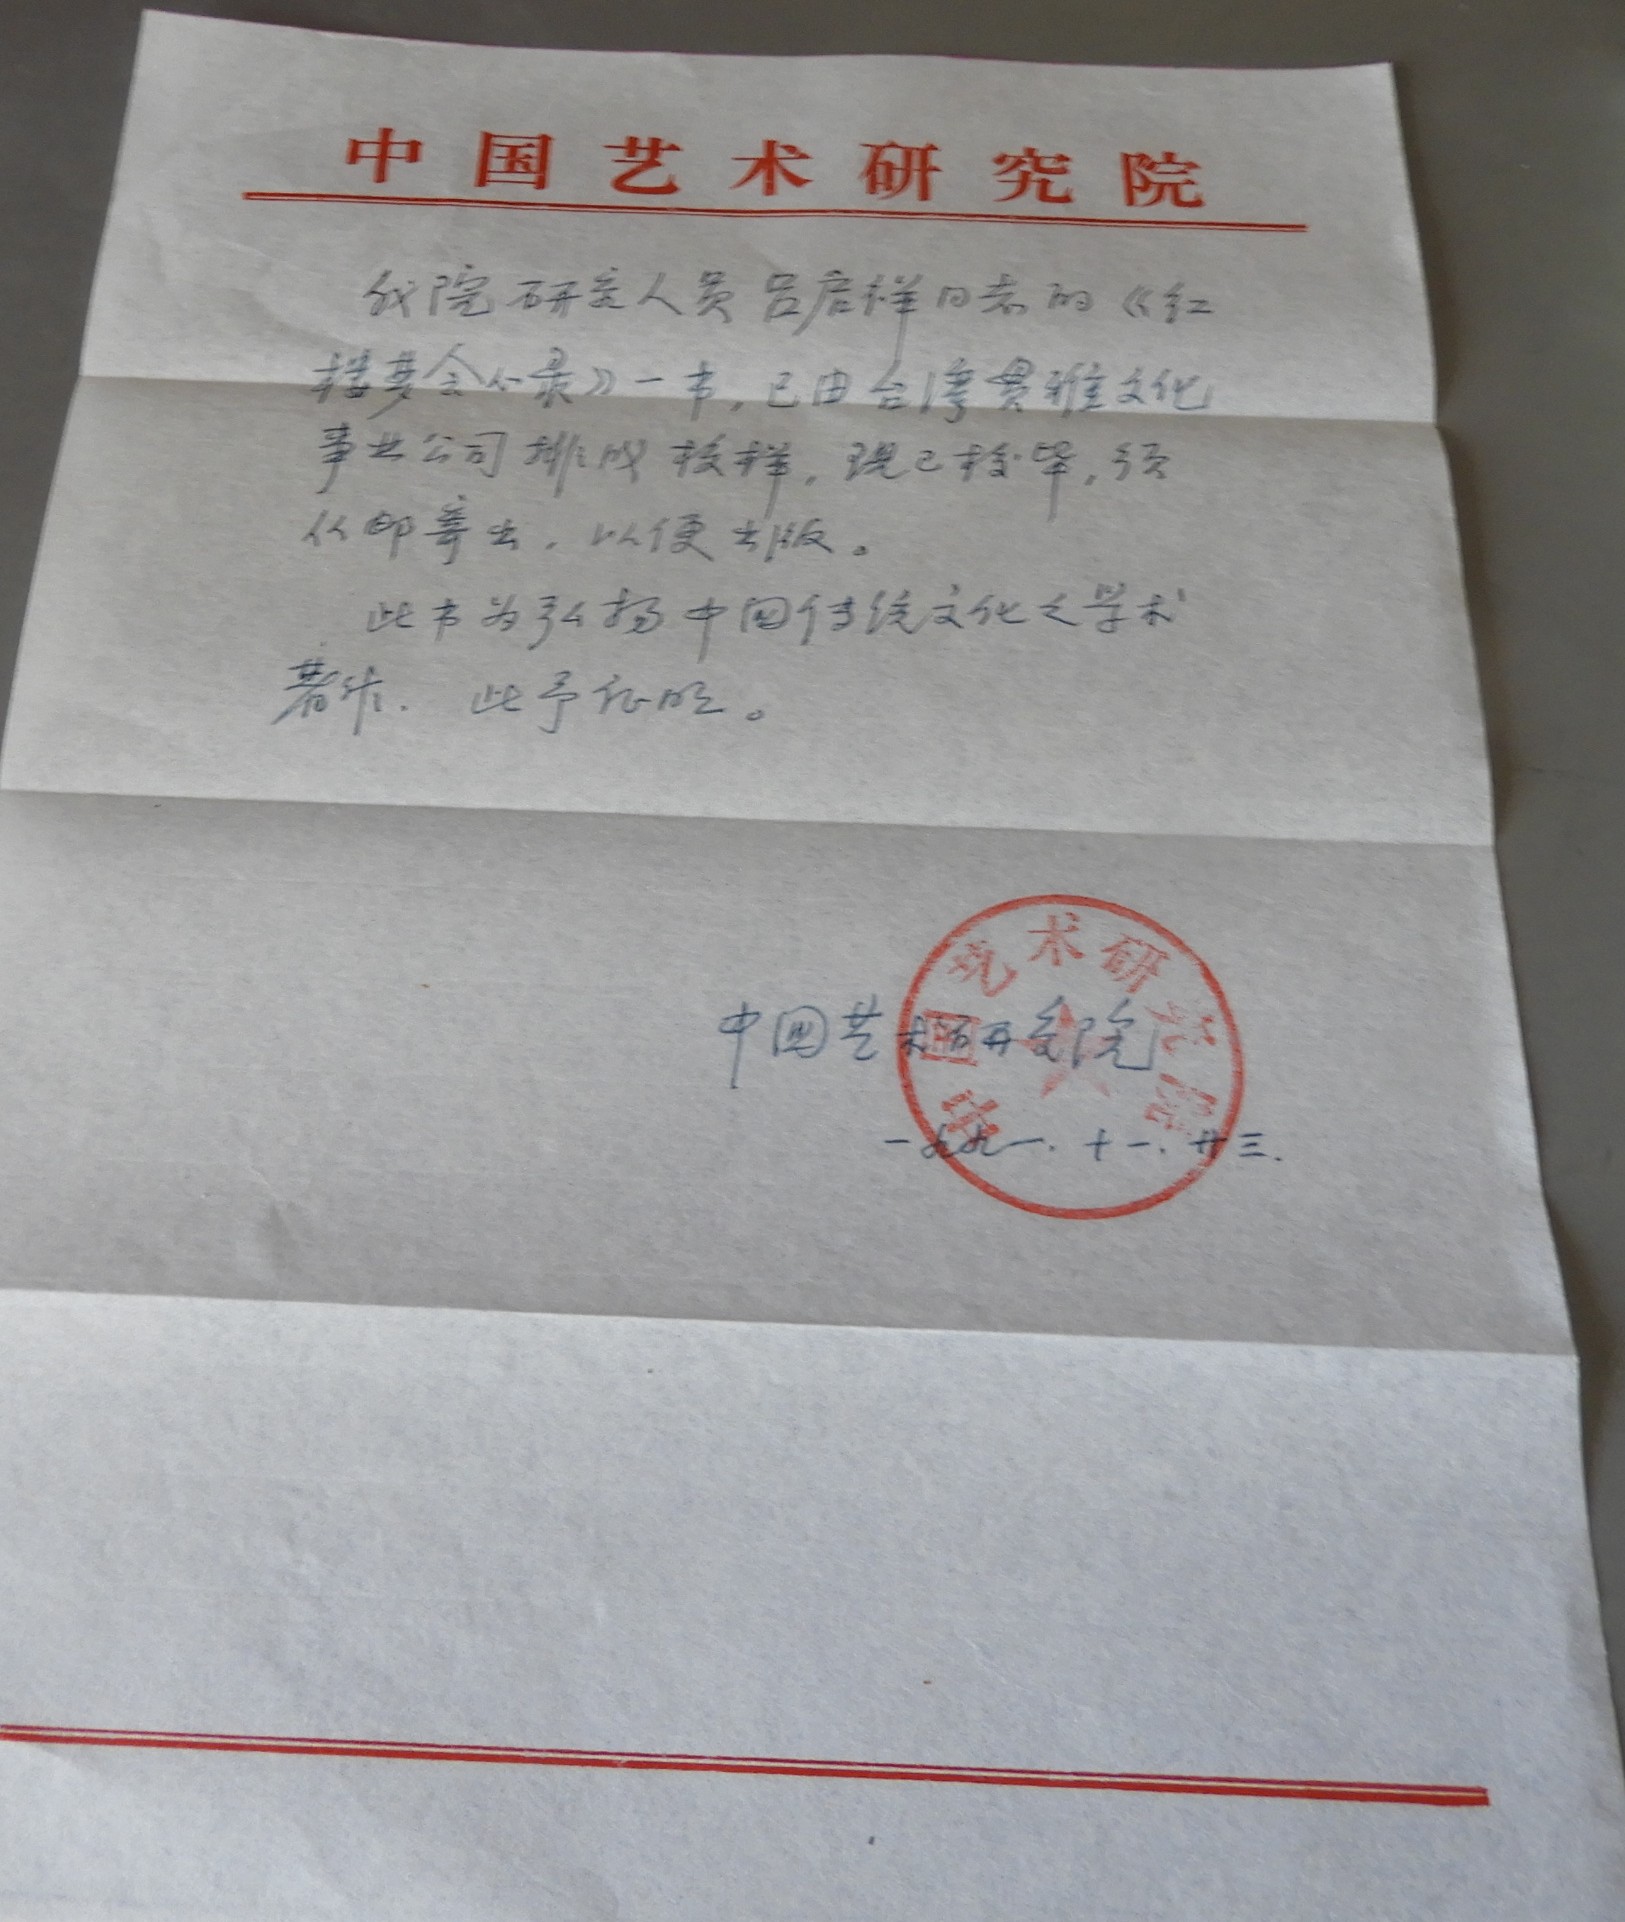 中国艺术研究院
我院研究人员吕启祥同志的《红
楼梦会心录》一书，已由台湾贯雅文化
事业公司排成校样，现已校毕，须
从邮寄出，以便出版。
此书为弘扬中国传统文化之学术
著作．此予证明。
中国艺术研究院
中国艺术研究院
一九九一．十一．廿三．